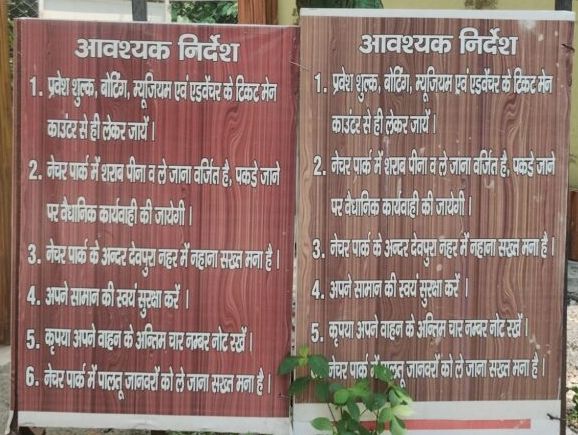 आवश्यक निर्देश
1. प्रवेश शुल्क, बोटिंग, म्यूजियम एवं एडवेंचर के टिकट मेन
काउंटर से ही लेकर जायें।
2. नेचर पार्क में शराब पीना व ले जाना वर्जित है, पकड़े जाने
पर वैधानिक कार्यवाही की जायेगी।
3. नेचर पार्क के अन्दर देवपुरा नहर में नहाना सख्त मना है।
4. अपने सामान की स्वयं सुरक्षा करें।
5. कृपया अपने वाहन के अन्तिम चार नम्बर नोट रखें।
6. नेचर पार्क में पालतू जानवरों को ले जाना सख्त मना है।
आवश्यक निर्देश
1. प्रवेश शुल्क, बोटिंग, म्यूजियम एवं एडवेंचर के टिकट मेन
काउंटर से ही लेकर जायें।
2. नेचर पार्क में शराब पीना व ले जाना वर्जित है, पकड़े जाने
पर वैधानिक कार्यवाही की जायेगी।
3. नेचर पार्क के अन्दर देवपुरा नहर में नहाना सख्त मना है।
4. अपने सामान की स्वयं सुरक्षा करें।
5. कृपया अपने वाहन के अन्तिम चार नम्बर नोट रखें।
नेचर पार्क में पालतू जानवरों को ले जाना सख्त मना है।